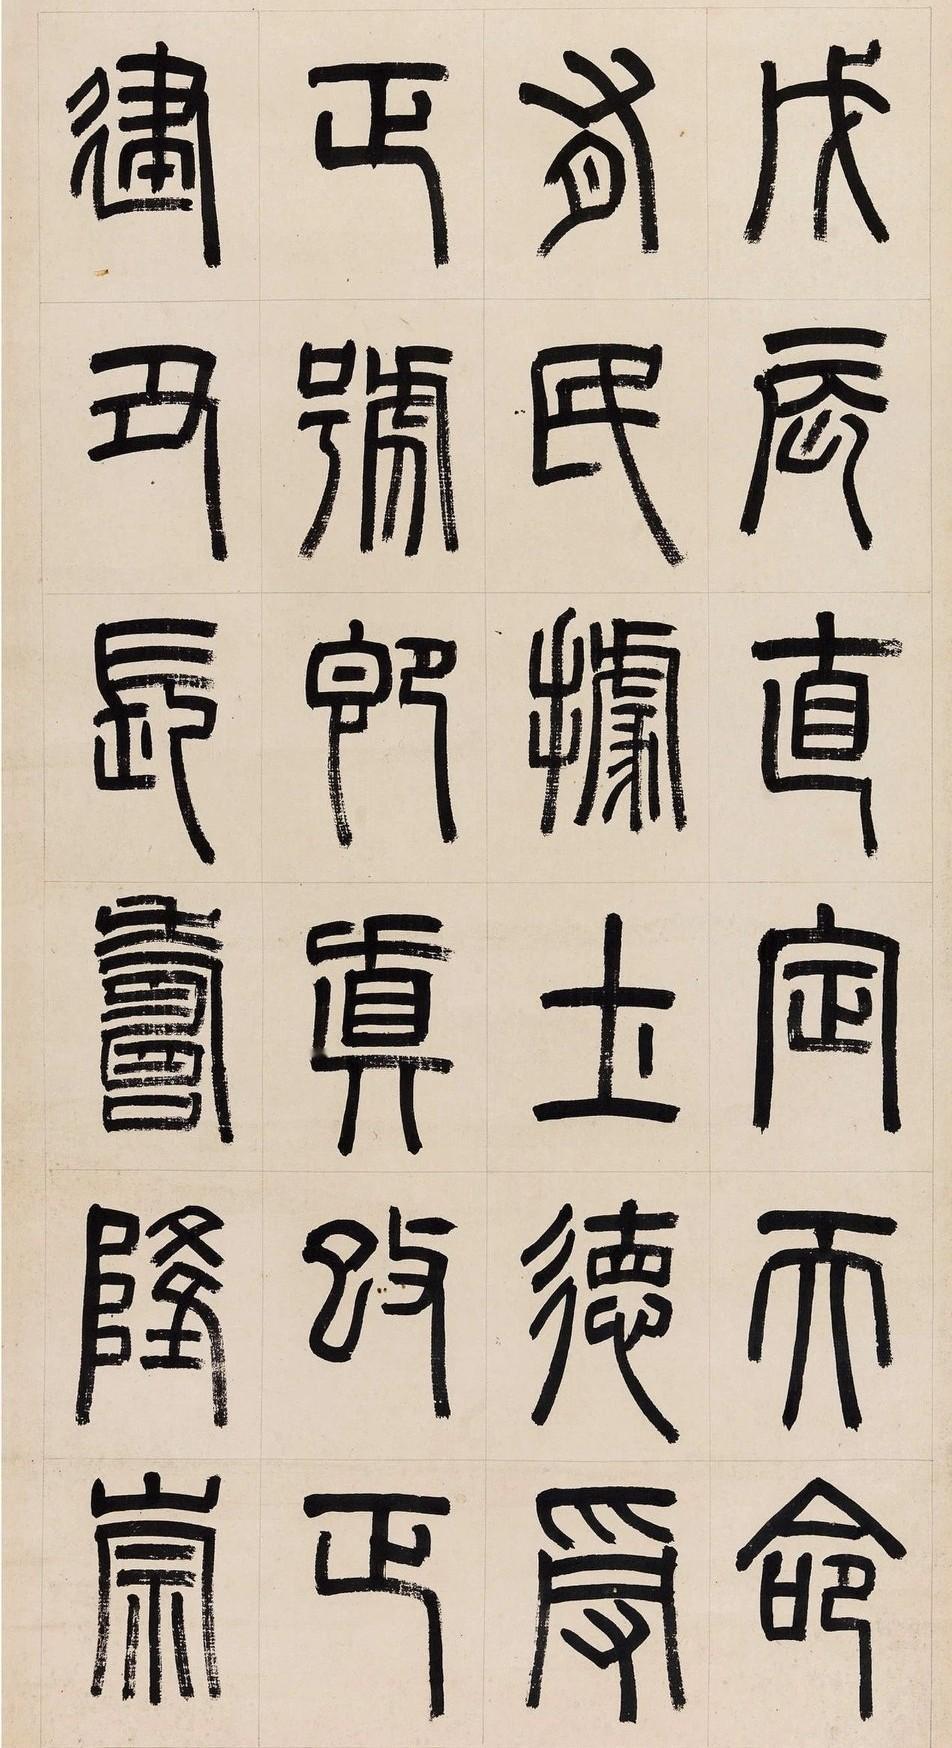 戊辰直定天命
有民據土德受
正號即真改正
建丑長壽隆崇